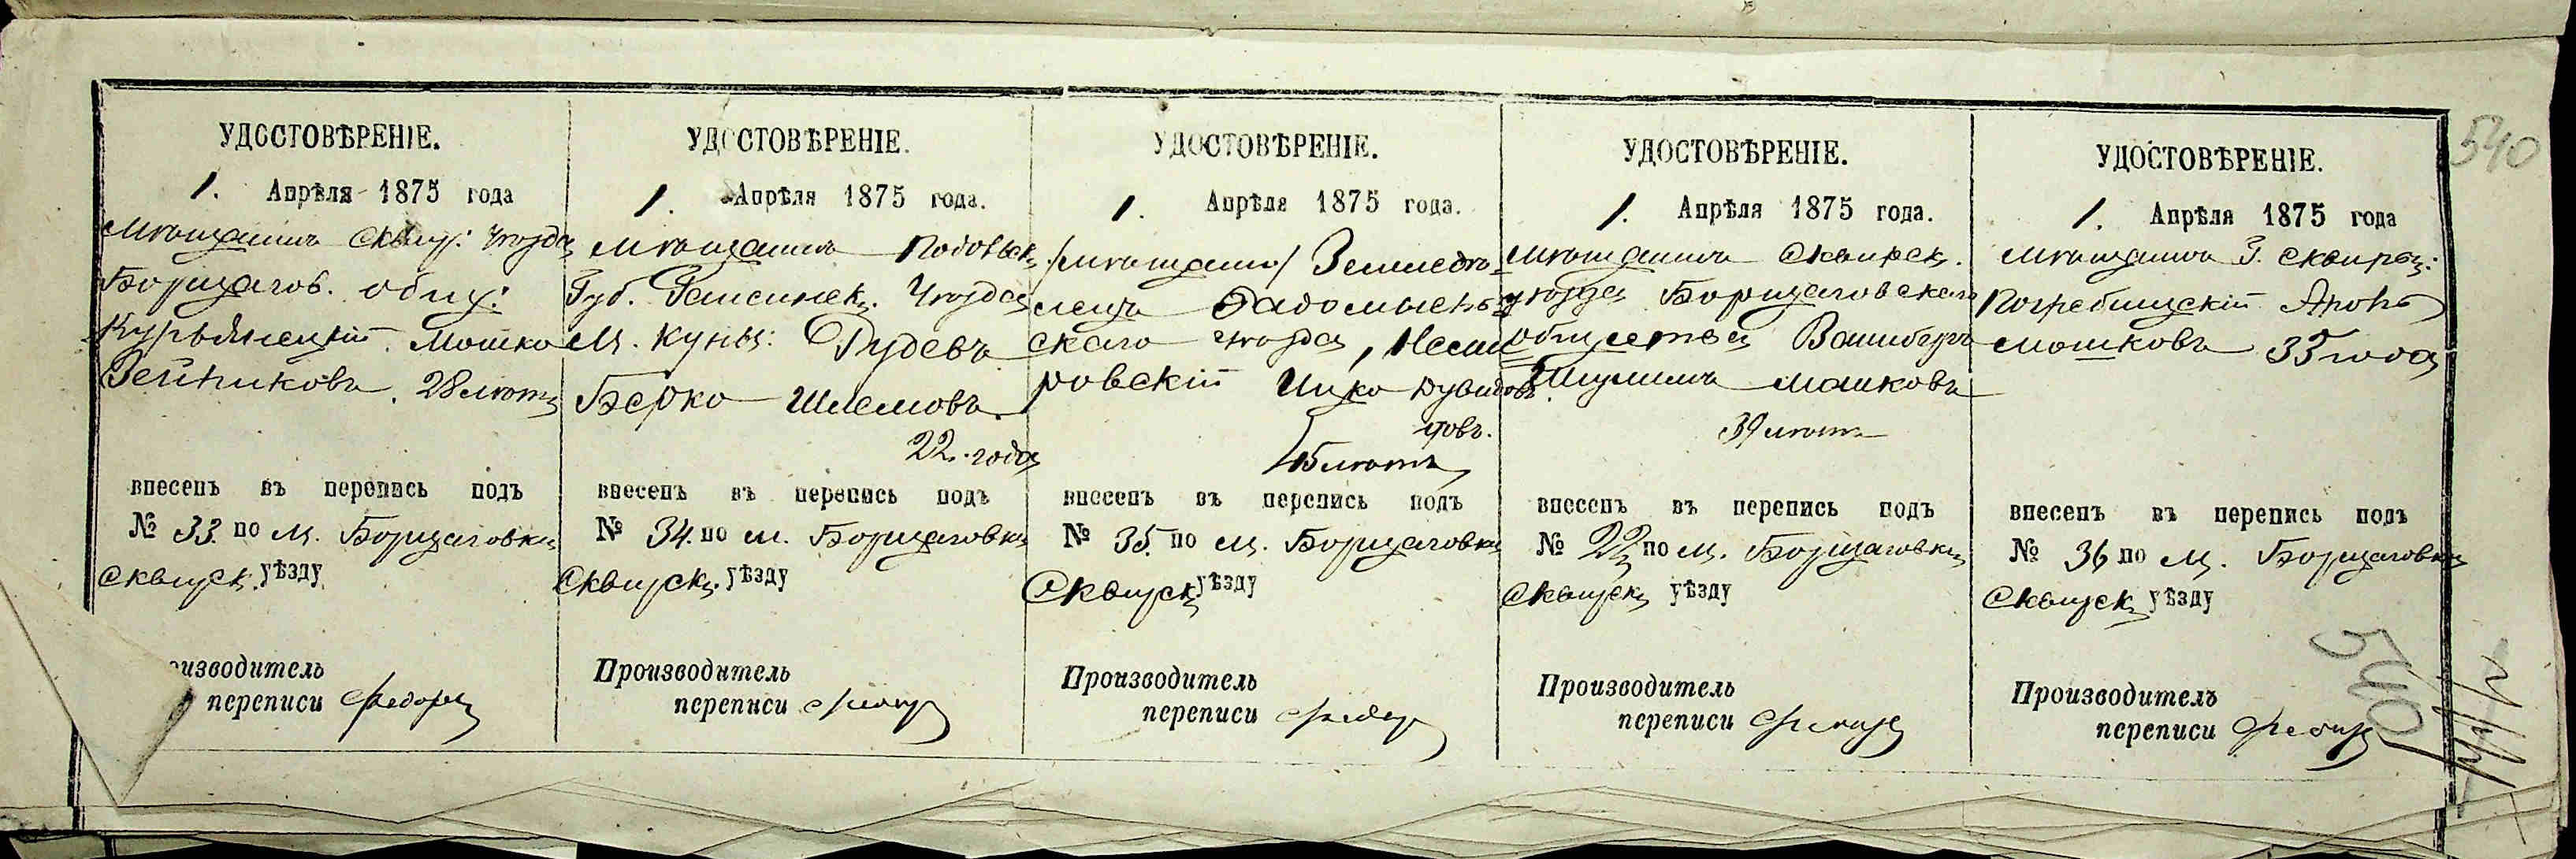 540
УДОСТОВѢРЕНІЕ.
1. Апрѣля 1875 года
Мѣщанинъ Сквир: Уѣзда
Борщагов. общ:
Мошко
Зейликовъ. 28 лѣтъ
внесенъ въ перепись подъ
№ 33. по м. Борщаговкѣ
Сквирск. уѣзду
оизводитель
переписи
УДОСТОВѢРЕНІЕ.
1. Апрѣля 1875 года.
Мѣщанинъ Подольск.
Губ. Гайсинск. Уѣзда
м. Куны:
Берко Шлемовъ.
22. года
внесенъ въ перепись подъ
№ 34. по м. Борщаговкѣ
Сквирск. уѣзду
Производитель
переписи
УДОСТОВѢРЕНІЕ.
1. Апрѣля 1875 года.
/мѣщанин/ Земледѣ-
лецъ Радомысль-
скаго уѣзда,
ровскій Ицко Дувидовъ.
внесенъ въ перепись подъ
№ 35. по м. Борщаговкѣ
Сквирск. уѣзду
Производитель
переписи
УДОСТОВѢРЕНІЕ.
1. Апрѣля 1875 года.
Мѣщанинъ Сквирск.
уѣзда Борщаговскаго
общества
Шулимъ Мошковъ
39 лѣтъ
внесенъ въ перепись подъ
№ по м. Борщаговкѣ
Сквирск. уѣзду
Производитель
переписи
УДОСТОВѢРЕНІЕ.
1. Апрѣля 1875 года
Мѣщанинъ Г. Сквиры:
Погребищскій Аронъ
Мошковъ года
внесенъ въ перепись подъ
№ 36 по м. Борщаговкѣ
Сквирск. уѣзду
Производитель
переписи
540